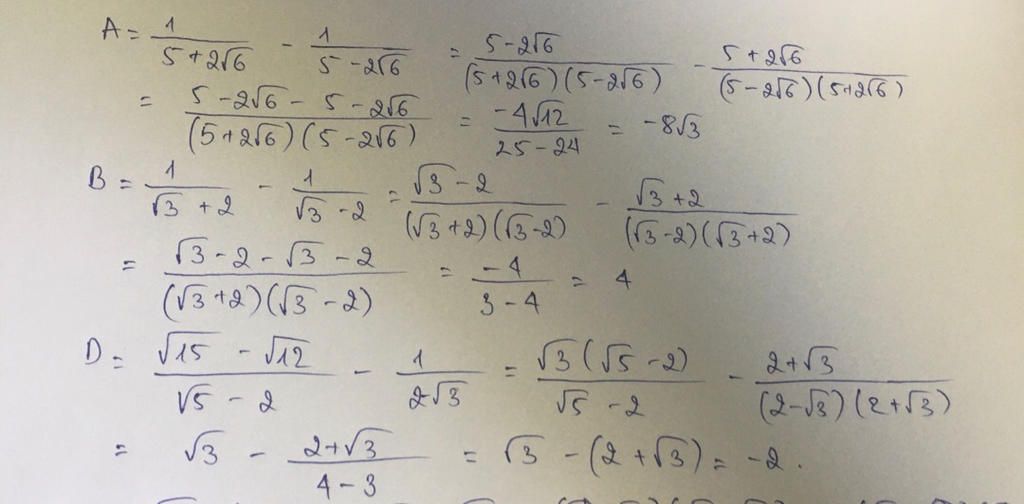 A = 1/(5+2√6) - 1/(5-2√6) = (5-2√6)/((5+2√6)(5-2√6)) - (5+2√6)/((5-2√6)(5+2√6))
= (5-2√6 - 5-2√6)/((5+2√6)(5-2√6)) = (-4√12)/(25-24) = -8√3
B = 1/(√3+2) - 1/(√3-2) = (√3-2)/((√3+2)(√3-2)) - (√3+2)/((√3-2)(√3+2))
= (√3-2-√3-2)/((√3+2)(√3-2)) = (-4)/(3-4) = 4
D = (√15-√12)/(√5-2) - 1/(2√3) = (√3(√5-2))/(√5-2) - (2+√3)/((2-√3)(2+√3))
= √3 - (2+√3)/(4-3) = √3 - (2+√3) = -2.